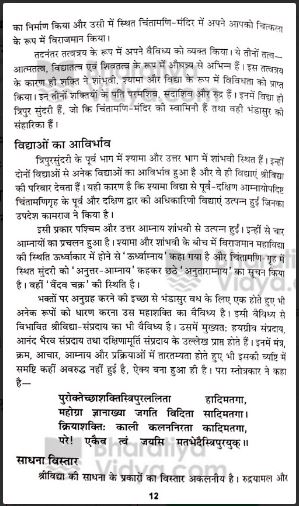 का निर्माण किया और उसी में स्थित चिंतामणि-मंदिर में अपने आपको चित्कला
के रूप में विराजमान किया।
तदनंतर तत्वत्रय के रूप में अपने वैविध्य को व्यक्त किया। ये तीनों तत्व-
आत्मतत्व, विद्यातत्व एवं शिवतत्व के रूप में औघत्रय से अभिन्न हैं। इस तत्वत्रय
के कारण ही शक्ति ने शांभवी, श्यामा और विद्या के रूप में विविधता को प्राप्त
किया। इन तीनों शक्तियों के पति परमशिव, सदाशिव और रुद्र हैं। इनमें विद्या ही
त्रिपुर सुंदरी हैं, जो कि चिंतामणि-मंदिर की स्वामिनी हैं तथा वही भंडासुर की
संहारिका हैं।
विद्याओं का आविर्भाव
त्रिपुरसुंदरी के पूर्व भाग में श्यामा और उत्तर भाग में शांभवी स्थित हैं। इन्हीं
दोनों विद्याओं से अनेक विद्याओं का आविर्भाव हुआ है और वे ही विद्याएं श्रीविद्या
की परिवार देवता हैं। यही कारण है कि श्यामा विद्या से पूर्व-दक्षिण आम्नायोपदिष्ट
चिंतामणिगृह के पूर्व और दक्षिण द्वार की अधिकारिणी विद्याएं उत्पन्न हुईं जिनका
उपदेश कामराज ने किया।
इसी प्रकार पश्चिम और उत्तर आम्नाय शांभवी से उत्पन्न हुईं। इन्हीं से चार
आम्नायों का प्रचलन हुआ है। श्यामा और शांभवी के बीच में विराजमान महाविद्या
की स्थिति ऊर्ध्वाकार में होने से 'ऊर्ध्वाम्नाय' कहा गया है और चिंतामणि गृह में
स्थित सुंदरी को 'अनुत्तर-आम्नाय' कहकर छठे 'अनुत्तराम्नाय' का सूचन किया
है। वहीं 'वैंदव चक्र' की स्थिति है।
भक्तों पर अनुग्रह करने की इच्छा से भंडासुर वध के लिए एक होते हुए भी
अनेक रूपों को धारण करना उस महाशक्ति का वैविध्य है। इसी वैविध्य से
विभावित श्रीविद्या-संप्रदाय का भी वैविध्य है। उसमें मुख्यतः हयग्रीव संप्रदाय,
आनंद भैरव संप्रदाय तथा दक्षिणामूर्ति संप्रदाय के उल्लेख प्राप्त होते हैं। इनमें मंत्र,
क्रम, आचार, आम्नाय और प्रक्रियाओं में तारतम्यता होते हुए भी इसकी व्यष्टि में
समष्टि कहीं अवरुद्ध नहीं हुई है, ऐक्य बना हुआ ही है। परा स्तोत्रकार ने कहा
है—
पुरोक्तेच्छाशक्तिस्त्रिपुरललिता हादिमतगा,
महोग्रा ज्ञानाख्या जगति विदिता सादिमतगा।
क्रियाशक्तिः काली कलननिरता कादिमतगा,
परे! एकैव त्वं जयसि मतभेदैस्त्रिपुरयुक्॥
साधना विस्तार
श्रीविद्या की साधना के प्रकारों का विस्तार अकलनीय है। रुद्रयामल और
12
Bharatiya
Vidya.com